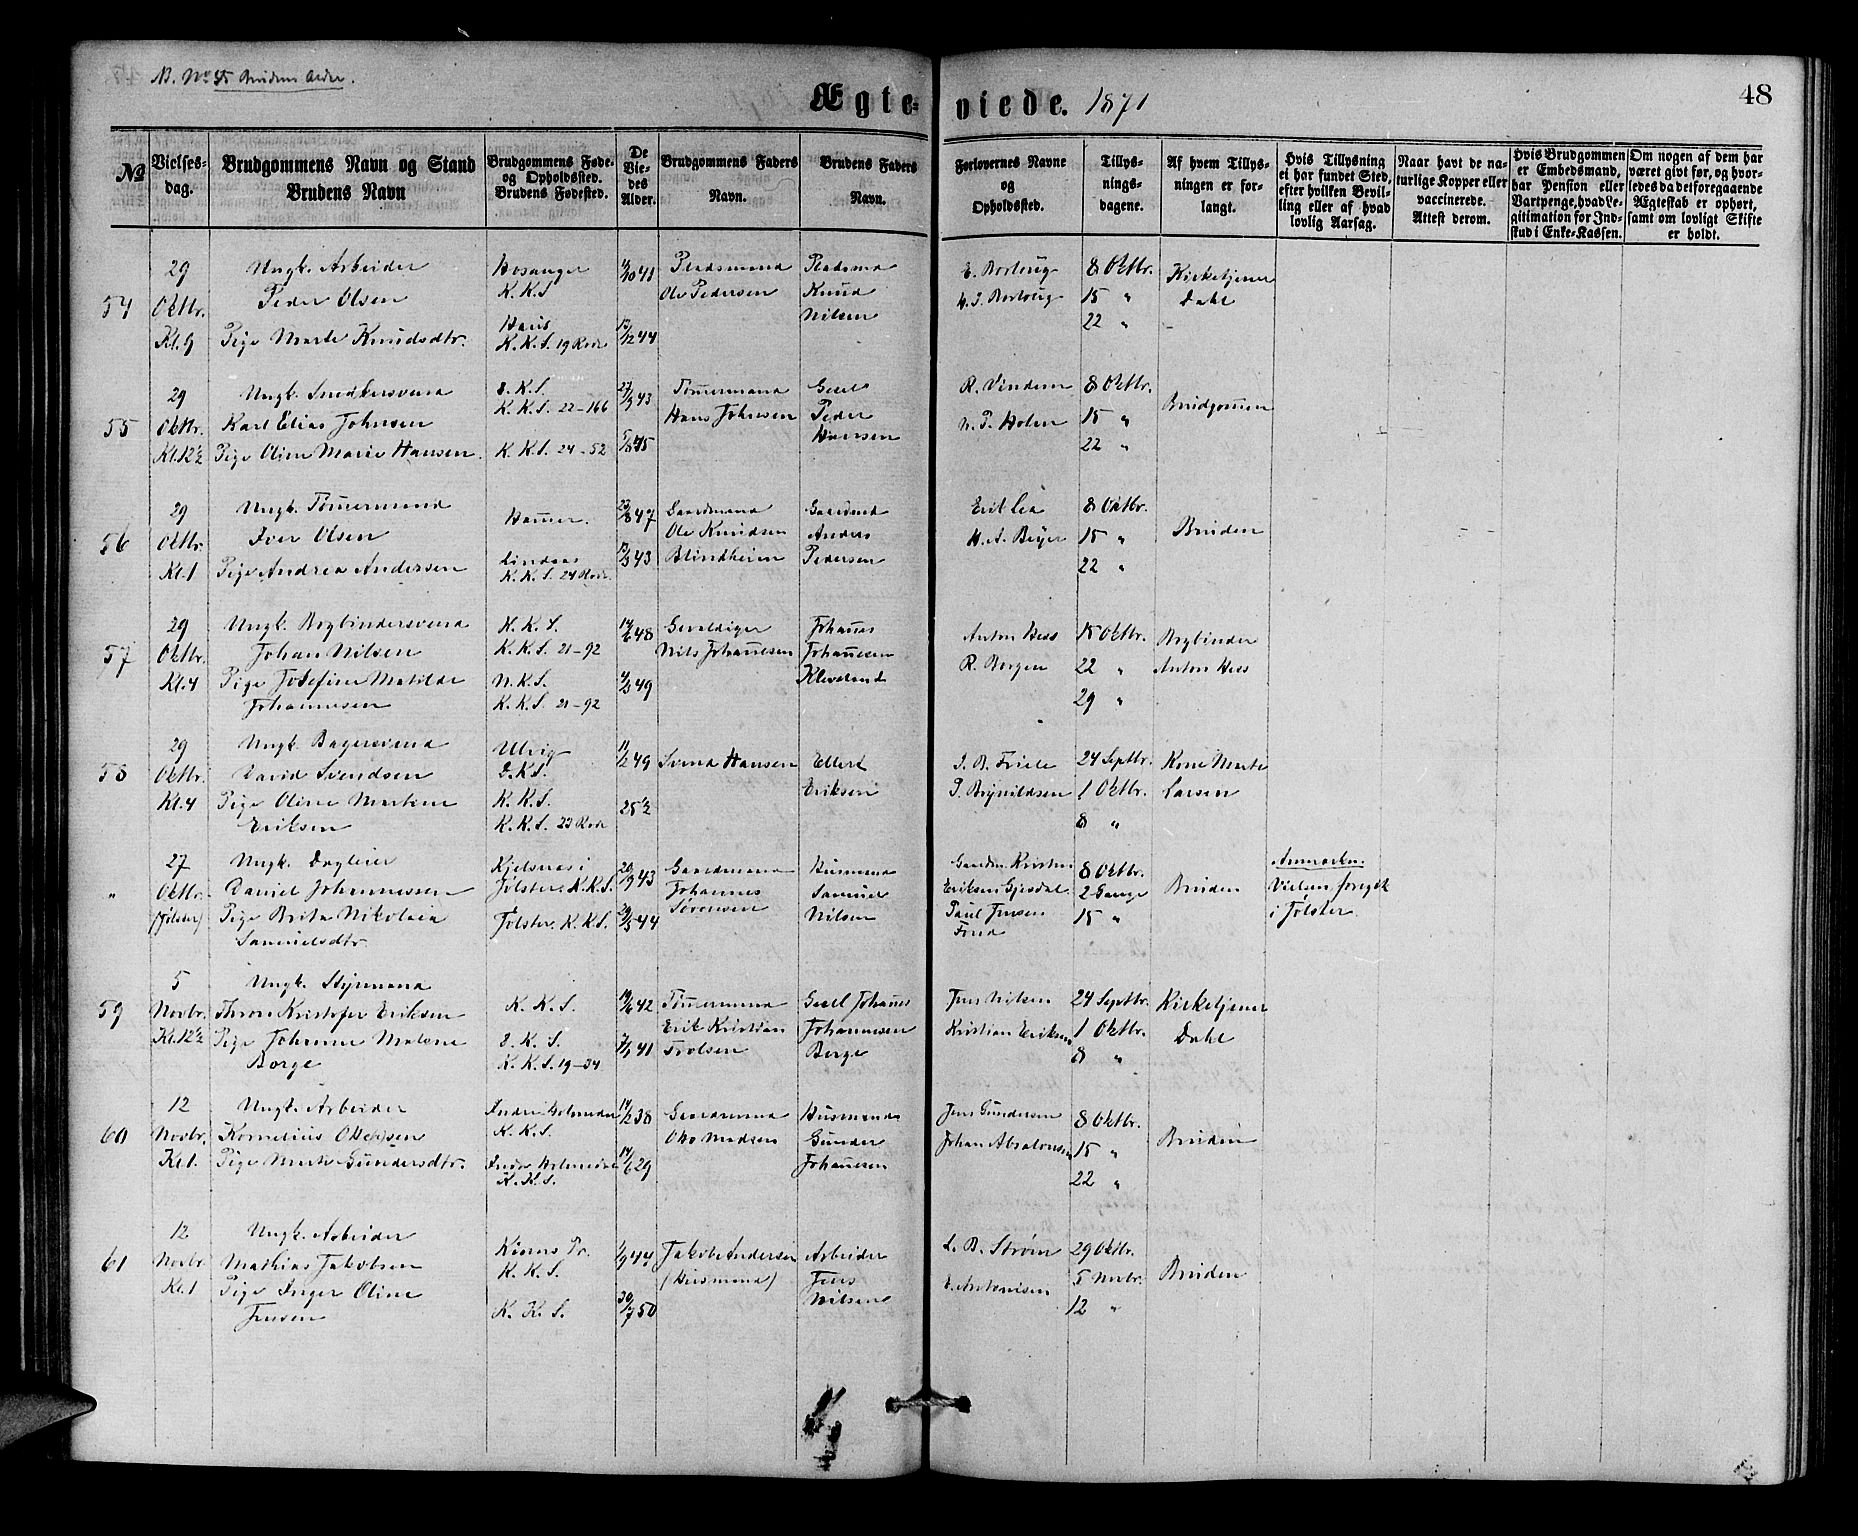 N. No 55 Brudens Alder.
Ægteviede. 1871
48
No
Vielsesdag.
Brudgommens Navn og Stand
Brudens Navn
Brudgommens Føde-
og Opholdssted.
Brudens Fødested.
De
Vie-
des
Alder.
Brudgommens Faders
Navn.
Brudens Faders
Navn.
Forlovernes Navne
og
Opholdssted.
Tillys-
nings-
dagene.
Af hvem Tillys-
ningen er for-
langt.
Hvis Tillysning
ei har fundet Sted,
efter hvilken Bevil-
ling eller af hvad
lovlig Aarsag.
Naar havt de na-
turlige Kopper eller
vaccinerede.
Attest derom.
Hvis Brudgommen
er Embedsmand,
har Pension eller
Vartpenge, hvad Le-
gitimation for Ind-
skud i Enke-Kassen.
Om nogen af dem har
været givt før, og hvor-
ledes da det foregaaende
Ægteskab er ophørt,
samt om lovligt Skifte
er holdt.
54
29
Oktbr.
Kl. 9
Ungk. Arbeider
Peder Olsen
Pige Marte Knudsdtr.
Hosanger
K.K.S
Haus
K.K.S. 19 Rode
41
12/12 44
Pladsmand
Ole Pedersen
Pladsmd
Knud
Nilsen
8 Oktbr.
15 "
22 "
Kirketjener
Dahl
55
29
Oktbr.
Kl. 12½
Ungk. Snedkersvend
Karl Elias Johnsen
Pige Oline Marie Hansen.
D.K.S.
K.K.S. 22-166
K.K.S. 24-52
43
45
Tømermand
Hans Johnsen
Gesel
Peder
Hansen
R. Vindem
N. P. Holm
8 Oktbr.
15 "
22 "
Brudgomen
56
29
Oktbr.
Kl. 1
Ungk. Tømermand
Iver Olsen
Pige Andrea Andersen
Hamer.
Lindaas
K.K.S. 24 Rode
23/8 47
43
Gaardmand
Ole Knudsen
Blindheim
Gaardmd
Anders
Pedersen
Erik Lea
H. A. Beyer
8 Oktbr.
15 "
22 "
Bruden
57
29
Oktbr.
Kl. 4
Ungk. Bogbindersvend
Johan Nilsen
Pige Josefine Matilde
Johannesen
K.K.S.
K.K.S. 21-92
N.K.S.
K.K.S. 21-92
14/6 48
49
Gevaldiger
Nils Johanesen
Johanes
Johanesen
Kleveland
Anton Hess
R. Borgen
15 Oktbr.
22 "
29 "
Bogbinder
Anton Hess
58
29
Oktbr.
Kl. 4
Ungk. Bagersvend
David Svendsen
Pige Oline Martine
Eriksen
Ulvig
D.K.S.
K.K.S.
K.K.S. 23 Rode
11/2 49
25½
Svend Hansen
Ellert
Eriksen
I. B. Friele
P. Brynildsen
24 Septbr.
1 Oktbr.
8 "
Kone Marte
Larsen
"
27
Oktbr.
(Jølster)
Ungk. Dagleier
Daniel Johannessen
Pige Brita Nikolaia
Samuelsdtr.
Kjelsnæs i
Jølster. K.K.S.
Jølster. K.K.S.
20/9 43
44
Gaardmand
Johannes
Sørensen
Husmand
Samuel
Nilsen
Gaardm. Kristen
Eriksen Gjesdal
Paul Jensen
8 Oktbr.
2 Gange
15 "
Bruden
Anmærkn.
Vielsen foregik
i Jølster.
59
5
Novbr.
Kl. 12½
Ungk. Styrmand
Thron Kristofer Eriksen
Pige Johanne Malene
Borge
K.K.S.
D.K.S.
K.K.S. 19-34
19/6 42
41
Tømermand
Erik Kristian
Trolsen
Gesel Johanes
Johannesen
Borge
Jens Nilsen
Kristian Eriksen
24 Septbr.
1 Oktbr.
8 "
Kirketjener
Dahl
60
12
Novbr.
Kl. 1.
Ungk. Arbeider
Kornelius Ottesen
Pige Marte Gundersdtr.
Indre Holmedal
K.K.S.
Indre Holmedal
K.K.S.
14/2 38
14/6 29
Gaardmand
Otto Madsen
Husmand
Gunder
Johanesen
Jens Gundersen
Johan Absalonsen
8 Oktbr.
15 "
22 "
Bruden
61
12
Novbr.
Kl. 1
Ungk. Arbeider
Mathias Jakobsen
Pige Inger Oline
Jensen
K.K.S.
K.K.S.
1/9 44
20/7 50
Jakob Andersen
(Husmand)
Arbeider
Jens
Nilsen
L. B. Strøm
E. Antonisen
29 Oktbr.
5 Novbr.
12 "
Bruden